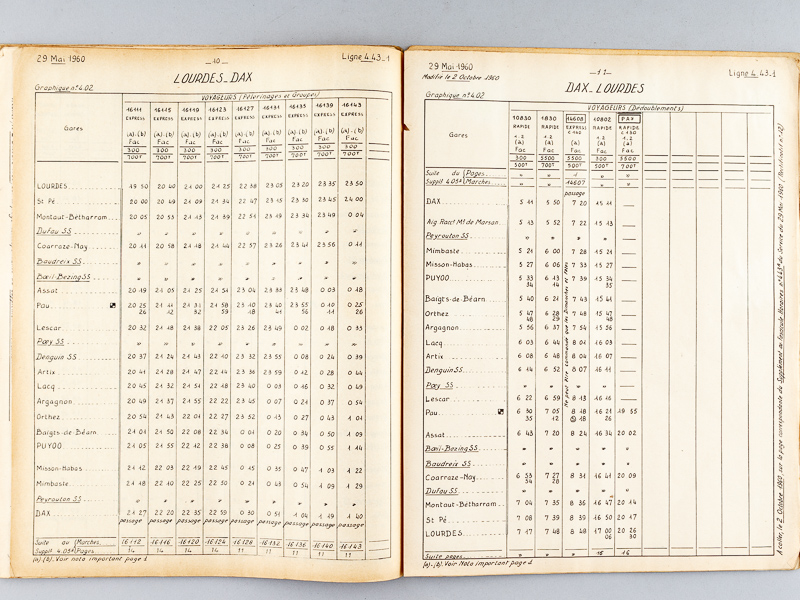 29 Mai 1960
— 10 —
Ligne 4.43-1
LOURDES_DAX
Graphique n° 4.02
VOYAGEURS (Pèlerinages et Groupes)
Gares 16111 16115 16119 16123 16127 16131 16135 16139 16143
EXPRESS EXPRESS EXPRESS EXPRESS EXPRESS EXPRESS EXPRESS EXPRESS EXPRESS
(a).(b) (a).(b) (a).(b) (a).(b) (a).(b) (a).(b) (a).(b) (a).(b) (a).(b)
Fac Fac Fac Fac Fac Fac Fac Fac Fac
300 300 300 300 300 300 300 300 300
700T 700T 700T 700T 700T 700T 700T 700T 700T
LOURDES 19 50 20 40 21 00 21 25 22 38 23 05 23 20 23 35 23 50
St Pé 20 00 20 49 21 09 21 34 22 47 23 15 23 30 23 45 24 00
Montaut-Bétharram 20 05 20 53 21 13 21 39 22 51 23 19 23 34 23 49 0 04
Dufau SS
Coarraze-Nay 20 11 20 58 21 18 21 44 22 57 23 26 23 41 23 56 0 11
Baudreix SS
Bœil-Bezing SS
Assat 20 19 21 05 21 25 21 51 23 04 23 33 23 48 0 03 0 18
Pau 20 25 21 11 21 31 21 58 23 10 23 40 23 55 0 10 0 25
26 12 32 59 18 41 56 11 26
Lescar 20 32 21 18 21 38 22 05 23 26 23 49 0 02 0 18 0 33
Poey SS
Denguin SS 20 37 21 24 21 43 22 10 23 32 23 55 0 08 0 24 0 39
Artix 20 41 21 28 21 47 22 14 23 36 23 59 0 12 0 28 0 44
Lacq 20 45 21 32 21 51 22 18 23 40 0 03 0 16 0 32 0 49
Argagnon 20 49 21 37 21 55 22 22 23 45 0 07 0 21 0 37 0 54
Orthez 20 54 21 43 22 01 22 27 23 52 0 13 0 27 0 43 1 01
Baigts-de-Béarn 21 01 21 50 22 08 22 34 0 01 0 20 0 34 0 50 1 09
PUYOO 21 05 21 55 22 12 22 38 0 08 0 25 0 39 0 55 1 14
Misson-Habas 21 12 22 03 22 19 22 45 0 15 0 35 0 47 1 03 1 22
Mimbaste 21 18 22 10 22 25 22 50 0 21 0 43 0 54 1 09 1 29
Peyrouton SS
DAX 21 27 22 20 22 35 22 59 0 30 0 51 1 04 1 19 1 40
passage passage passage passage passage passage passage passage passage
Suite au Marches 16112 16116 16120 16124 16128 16132 16136 16140 16143
Suppl 4.05a Pages 14 14 14 14 11 11 11 11 11
(a).(b). Voir nota important page 1
29 Mai 1960
— 11 —
Ligne 4_43-1
Modifié le 2 Octobre 1960
DAX_LOURDES
Graphique n° 4.02
VOYAGEURS (Dédoublements)
Gares 10830 1830 14608 10802 PAX
RAPIDE RAPIDE EXPRESS RAPIDE RAPIDE
1.2 1.2 C 140 1.2 L 150
(a) (a) (a) (a) 1.2
Fac Fac Fac Fac (a) Fac
300 5500 5500 300 3500
500T 500T 500T 700T 700T
Suite du Pages
Suppl 4.05a Marches 14607
passage
DAX 5 11 5 50 7 20 15 11 —
Aig Racct Mt de Marsan 5 13 5 52 7 22 15 13 —
Peyrouton SS
Mimbaste 5 21 6 00 7 28 15 21 —
Misson-Habas 5 27 6 06 7 33 15 27 —
PUYOO 5 33 6 13 7 39 15 34 —
34 14 35
Baigts-de-Béarn 5 40 6 21 7 43 15 41 —
Orthez 5 47 6 28 7 48 15 47 —
48 29 48
Argagnon 5 56 6 37 7 54 15 56 —
Lacq 6 03 6 44 8 01 16 03 —
Artix 6 08 6 48 8 04 16 07 —
Denguin SS 6 14 6 52 8 07 16 11 —
Poey SS
Lescar 6 22 6 59 8 13 16 16 —
Pau 6 30 7 05 8 18 16 21 19 55
35 12 18 26
Assat 6 43 7 20 8 24 16 34 20 02
Bœil-Bezing SS
Baudreix SS
Coarraze-Nay 6 53 7 27 8 31 16 41 20 09
54 28
Dufau SS
Montaut-Bétharram 7 04 7 35 8 36 16 47 20 14
St Pé 7 08 7 39 8 39 16 50 20 17
LOURDES 7 17 7 48 8 48 17 00 20 26
06 30
Suite pages 15 16
(a).(b). Voir Nota important page 1
Ne peut être commandé que les Dimanches et Fêtes
A coller, le 2 Octobre 1960, sur la page correspondante du Supplément au fascicule Horaires n° 4.43a du Service du 29 Mai 1960 (Rectificatif n° 12)